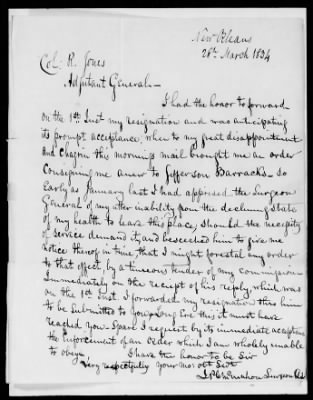 New Orleans
28th March 1834
Col. R. Jones
Adjutant General—
I had the honor to forward
on the 1st Inst my resignation and was anticipating
its prompt acceptance, when to my great disappointment
and chagrin this morning's mail brought me an order
Consigning me anew to Jefferson Barracks. So
Early as January last I had apprised the Surgeon
General of my utter inability from the declining state
of my health to leave this place, should the necessity
of service demand it, and beseeched him to give me
notice thereof in time, that I might forestal any order
to that effect, by a timeous tender of my Commission
Immediately on the receipt of his reply, which was
on the 1st Inst. I forwarded my resignation thro him
to be submitted to you, long ere this it must have
reached you. Spare I request by its immediate acceptance
the Enforcement of an order which I am wholely unable
to obey. I have the honor to be Sir
Very respectfully your mo. obt Servt
Surgeon